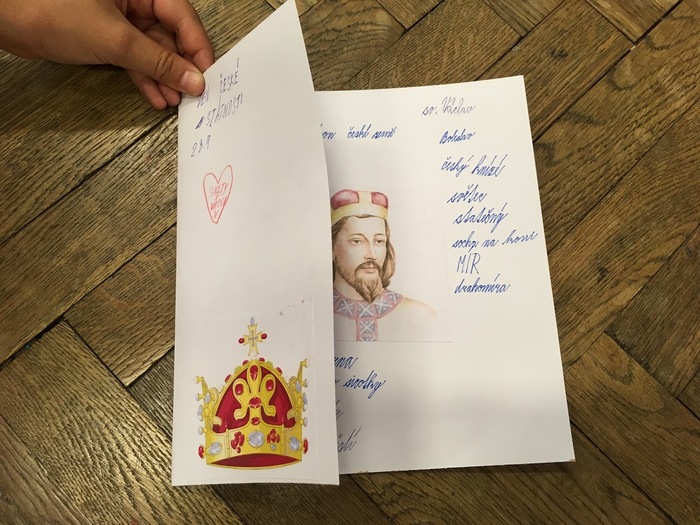 DEN ČESKÉ
STÁTNOSTI
28.9
sv. Václav
české země
Boleslav
český kníže
světec
statečný
socha na koni
MÍR
drahomíra
sirotky